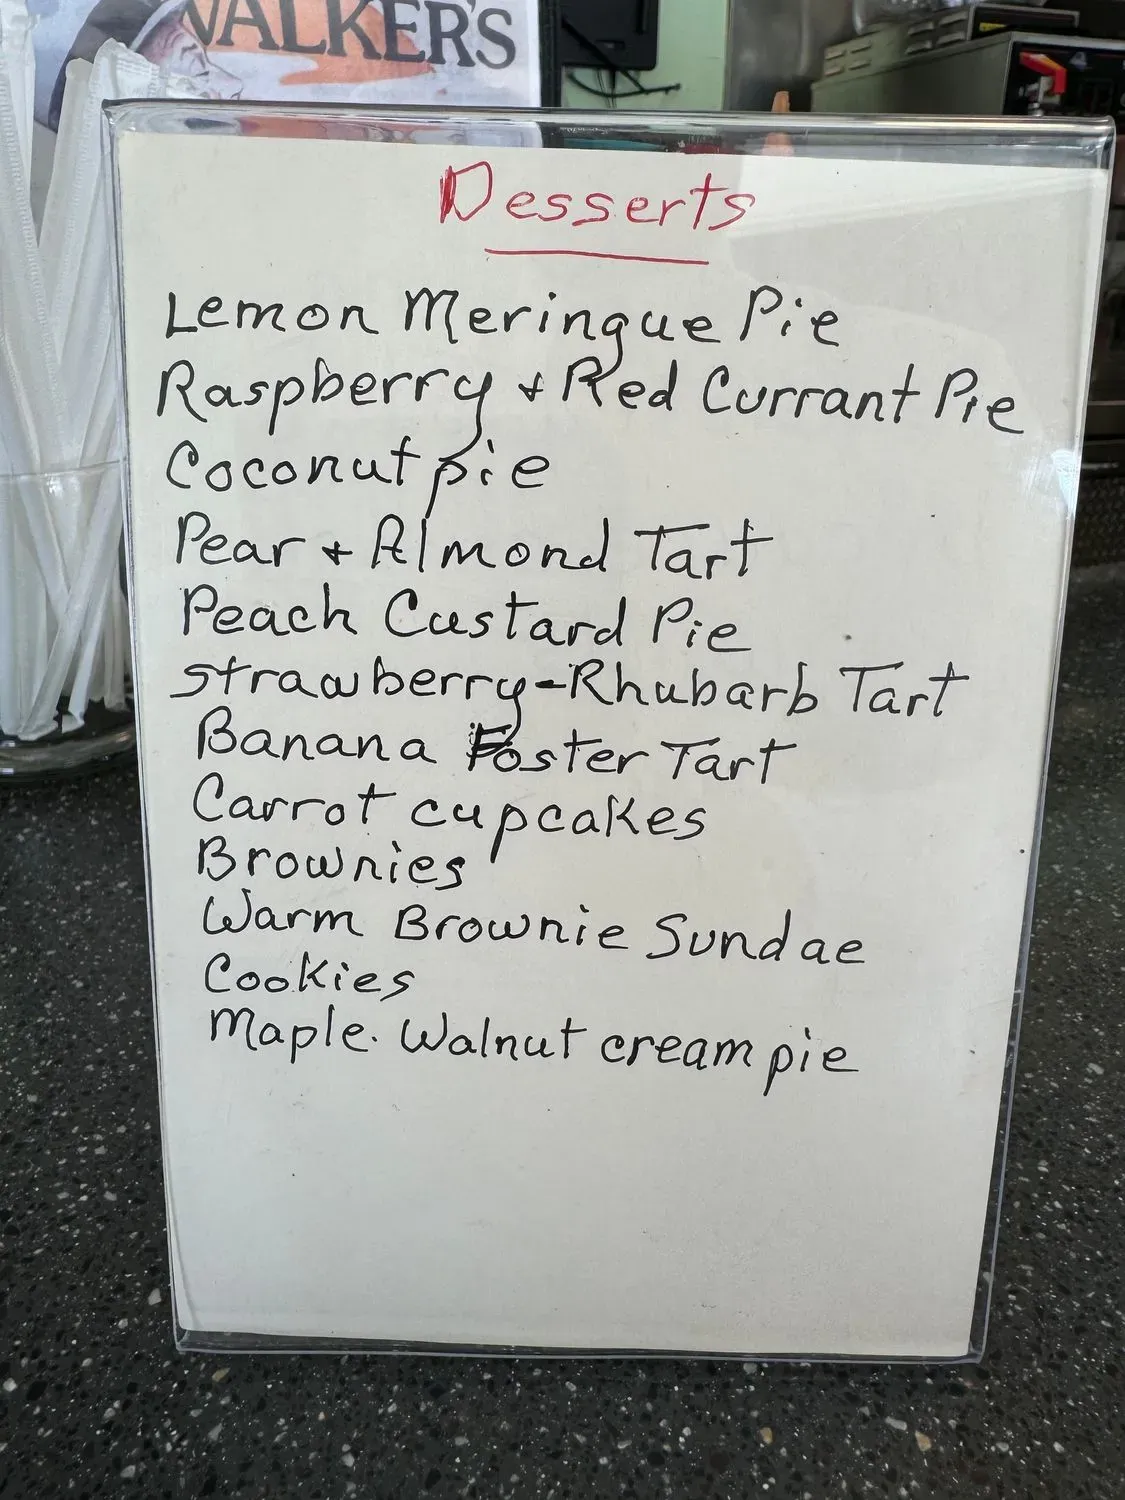 WALKER'S
Desserts
Lemon Meringue Pie
Raspberry + Red Currant Pie
Coconut pie
Pear + Almond Tart
Peach Custard Pie
Strawberry-Rhubarb Tart
Banana Foster Tart
Carrot cupcakes
Brownies
Warm Brownie Sundae
Cookies
Maple. Walnut cream pie